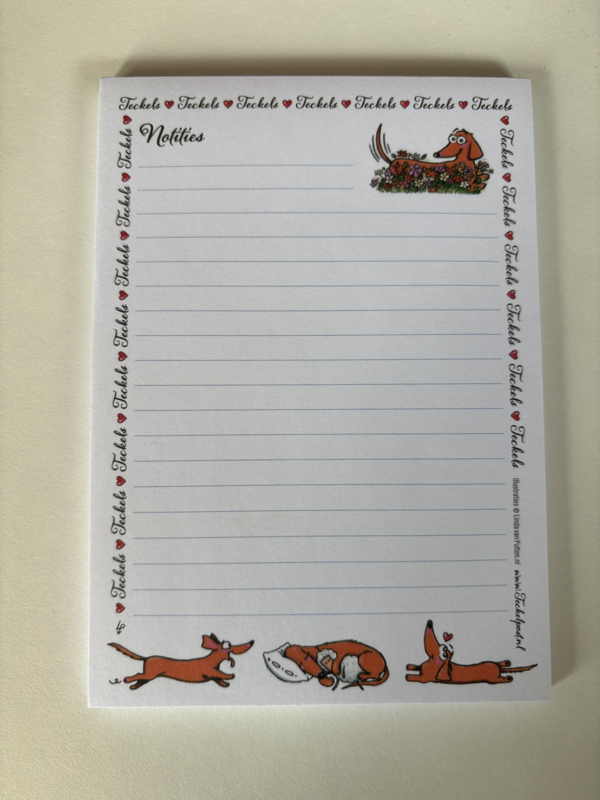 Teckels ♥ Teckels ♥ Teckels ♥ Teckels ♥ Teckels ♥ Teckels ♥ Teckels
Notities
♥ Teckels ♥ Teckels ♥ Teckels ♥ Teckels ♥ Teckels ♥ Teckels ♥ Teckels ♥ Teckels ♥
♥ Teckels ♥ Teckels ♥ Teckels ♥ Teckels ♥ Teckels ♥ Teckels
Illustraties © Linda van Putten.nl